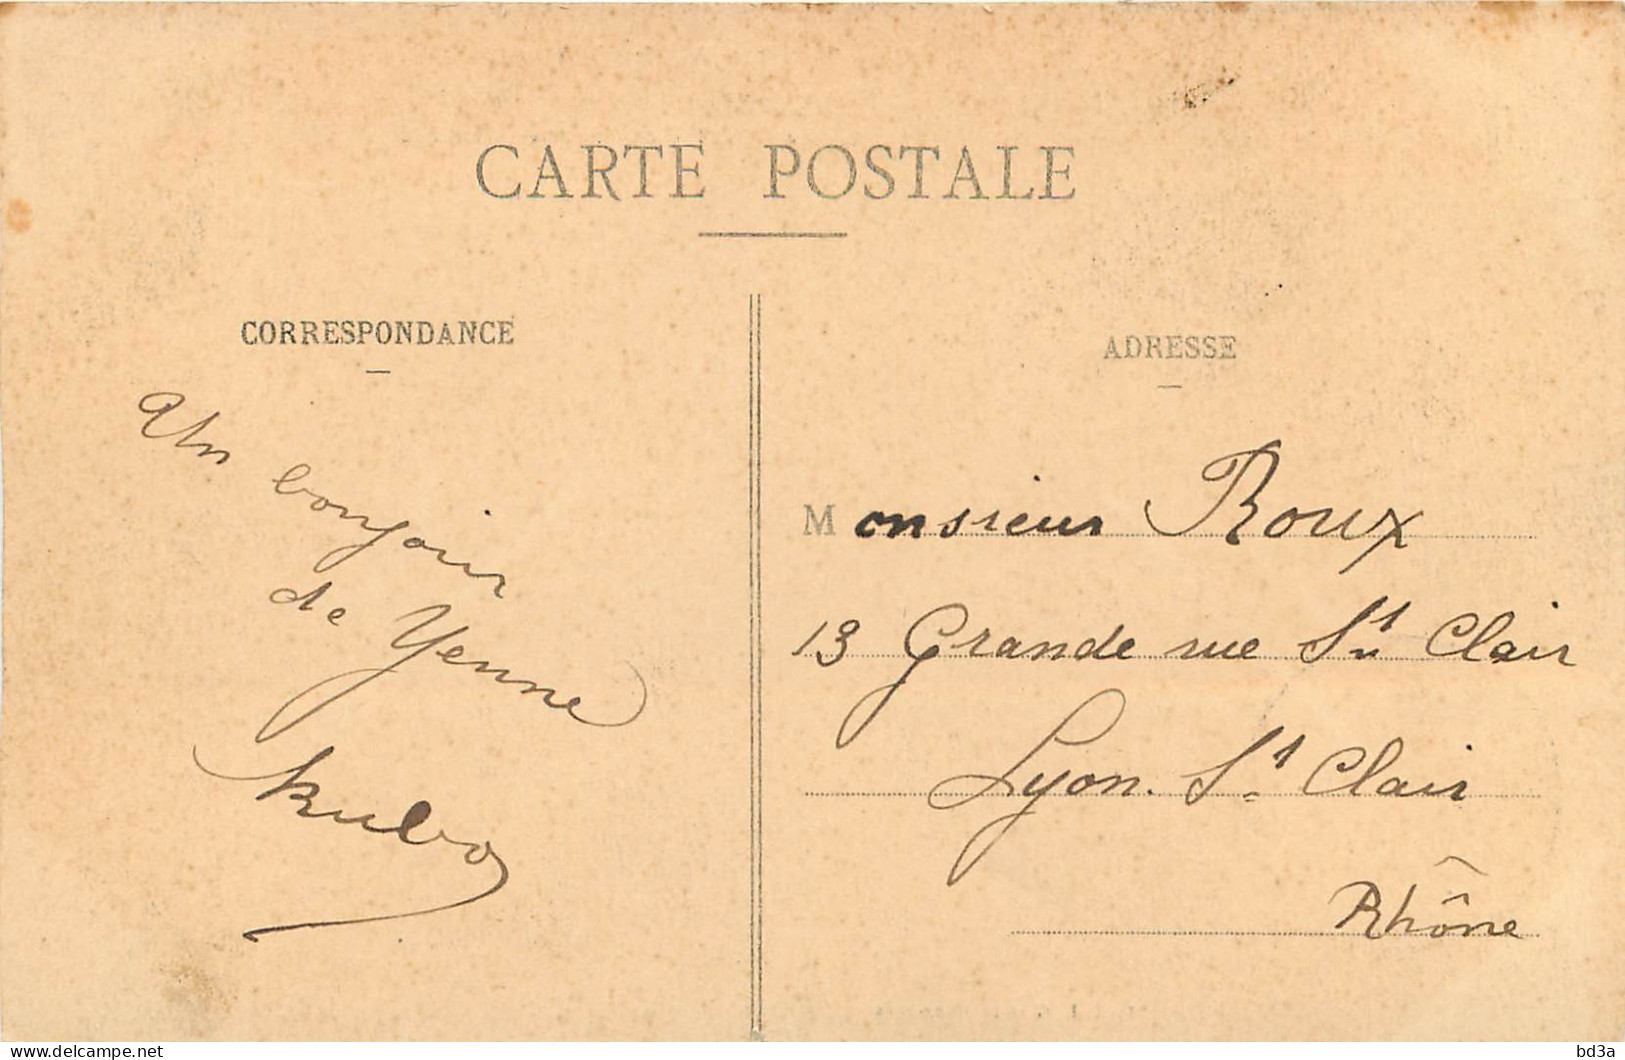 CARTE POSTALE
CORRESPONDANCE
Un
bonjour
de Yenne
ADRESSE
Monsieur Roux
13 Grande rue St Clair
Lyon. St Clair
Rhône
delcampe.net
bd3a